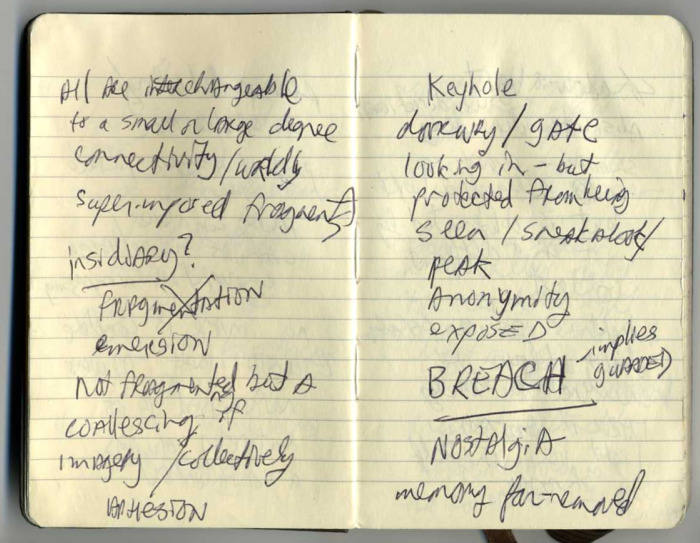 All are interchangeable
to a small or large degree
connectivity / worldly
superimposed fragments
insidiary?
fragmentation
emersion
Not fragmented but a
coallescing of
imagery / collectively
adhesion
Keyhole
doorway / gate
looking in - but
protected from being
seen / sneak a look /
peak
Anonymity
exposed
BREACH implies
guarded
Nostalgia
memory far-removed